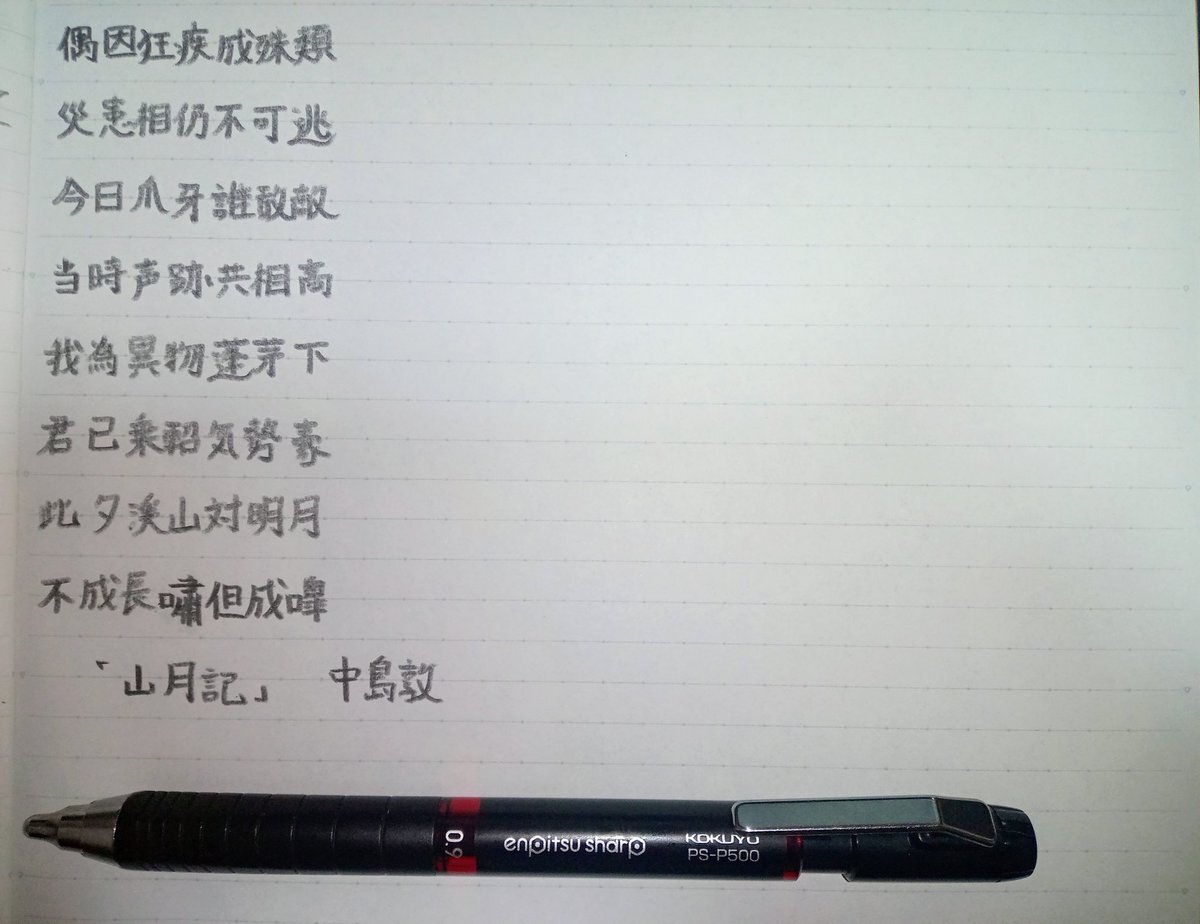 偶因狂疾成殊類
災患相仍不可逃
今日爪牙誰敢敵
当時声跡共相高
我為異物蓬茅下
君已乗軺気勢豪
此夕渓山対明月
不成長嘯但成嘷
「山月記」 中島敦
0.9 enpitsu sharp KOKUYO
PS-P500